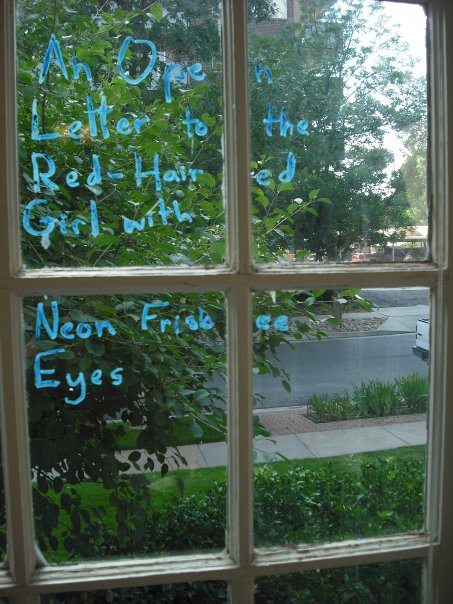 An Open
Letter to the
Red-Haired
Girl with
Neon Frisbee
Eyes